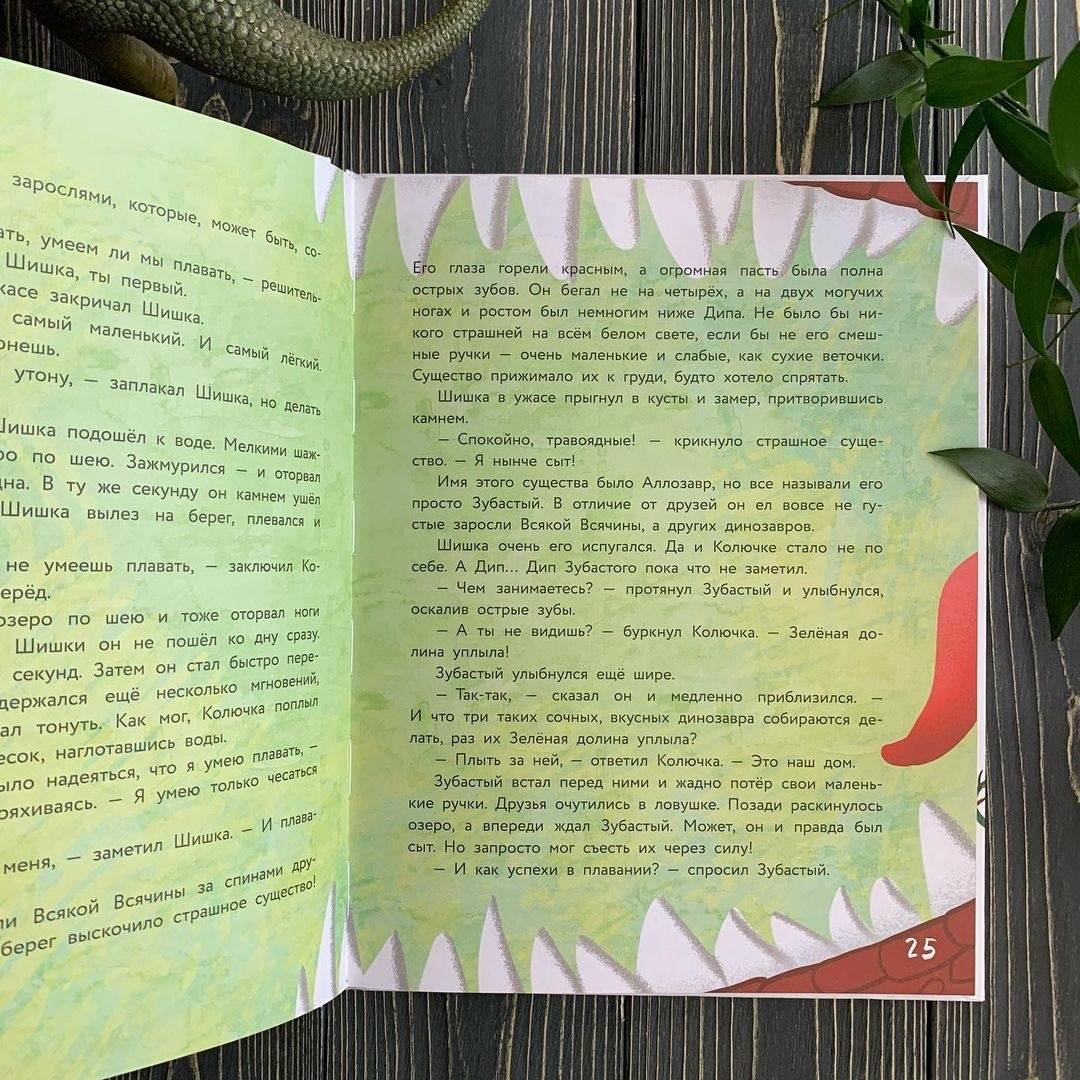 зарослями, которые, может быть, со-
ать, умеем ли мы плавать, — решитель-
Шишка, ты первый.
жасе закричал Шишка.
самый маленький. И самый лёгкий.
онешь.
утону, — заплакал Шишка, но делать
Шишка подошёл к воде. Мелкими шаж-
ро по шею. Зажмурился — и оторвал
дна. В ту же секунду он камнем ушёл
Шишка вылез на берег, плевался и
не умеешь плавать, — заключил Ко-
ерёд.
озеро по шею и тоже оторвал ноги
Шишки он не пошёл ко дну сразу.
секунд. Затем он стал быстро пере-
держался ещё несколько мгновений,
ал тонуть. Как мог, Колючка поплыл
есок, наглотавшись воды.
ыло надеяться, что я умею плавать, —
ряхиваясь. — Я умею только чесаться
меня, — заметил Шишка. — И плава-
ли Всякой Всячины за спинами дру-
берег выскочило страшное существо!
Его глаза горели красным, а огромная пасть была полна
острых зубов. Он бегал не на четырёх, а на двух могучих
ногах и ростом был немногим ниже Дипа. Не было бы ни-
кого страшней на всём белом свете, если бы не его смеш-
ные ручки — очень маленькие и слабые, как сухие веточки.
Существо прижимало их к груди, будто хотело спрятать.
Шишка в ужасе прыгнул в кусты и замер, притворившись
камнем.
— Спокойно, травоядные! — крикнуло страшное суще-
ство. — Я нынче сыт!
Имя этого существа было Аллозавр, но все называли его
просто Зубастый. В отличие от друзей он ел вовсе не гу-
стые заросли Всякой Всячины, а других динозавров.
Шишка очень его испугался. Да и Колючке стало не по
себе. А Дип... Дип Зубастого пока что не заметил.
— Чем занимаетесь? — протянул Зубастый и улыбнулся,
оскалив острые зубы.
— А ты не видишь? — буркнул Колючка. — Зелёная до-
лина уплыла!
Зубастый улыбнулся ещё шире.
— Так-так, — сказал он и медленно приблизился. —
И что три таких сочных, вкусных динозавра собираются де-
лать, раз их Зелёная долина уплыла?
— Плыть за ней, — ответил Колючка. — Это наш дом.
Зубастый встал перед ними и жадно потёр свои малень-
кие ручки. Друзья очутились в ловушке. Позади раскинулось
озеро, а впереди ждал Зубастый. Может, он и правда был
сыт. Но запросто мог съесть их через силу!
— И как успехи в плавании? — спросил Зубастый.
25